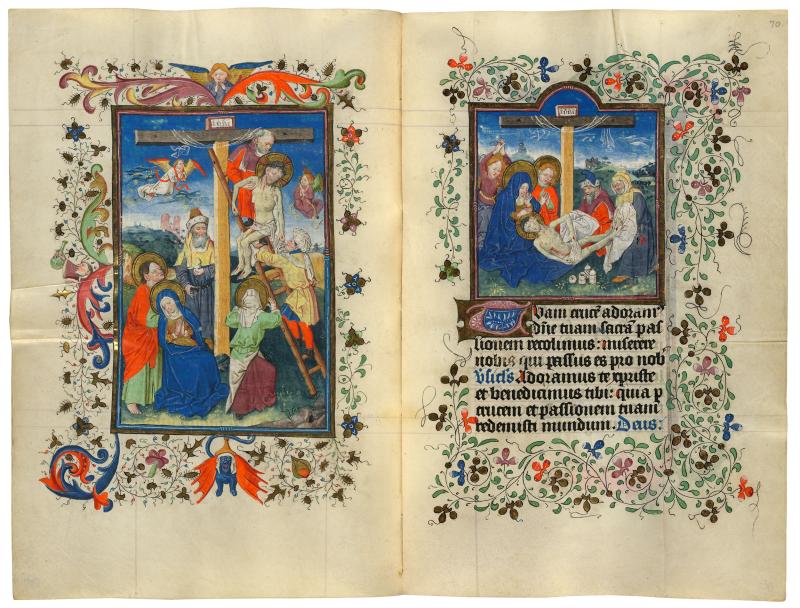 INRI
70
INRI
Tuam crucē adoram⁹
dn̄e tuam sacrā pas
sionem recolimus: miserere
nobis qui passus es pro nob
V̄sicl's Adoramus te christe
et benedicimus tibi: quia p
crucem et passionem tuam
redemisti mundum. Deus: